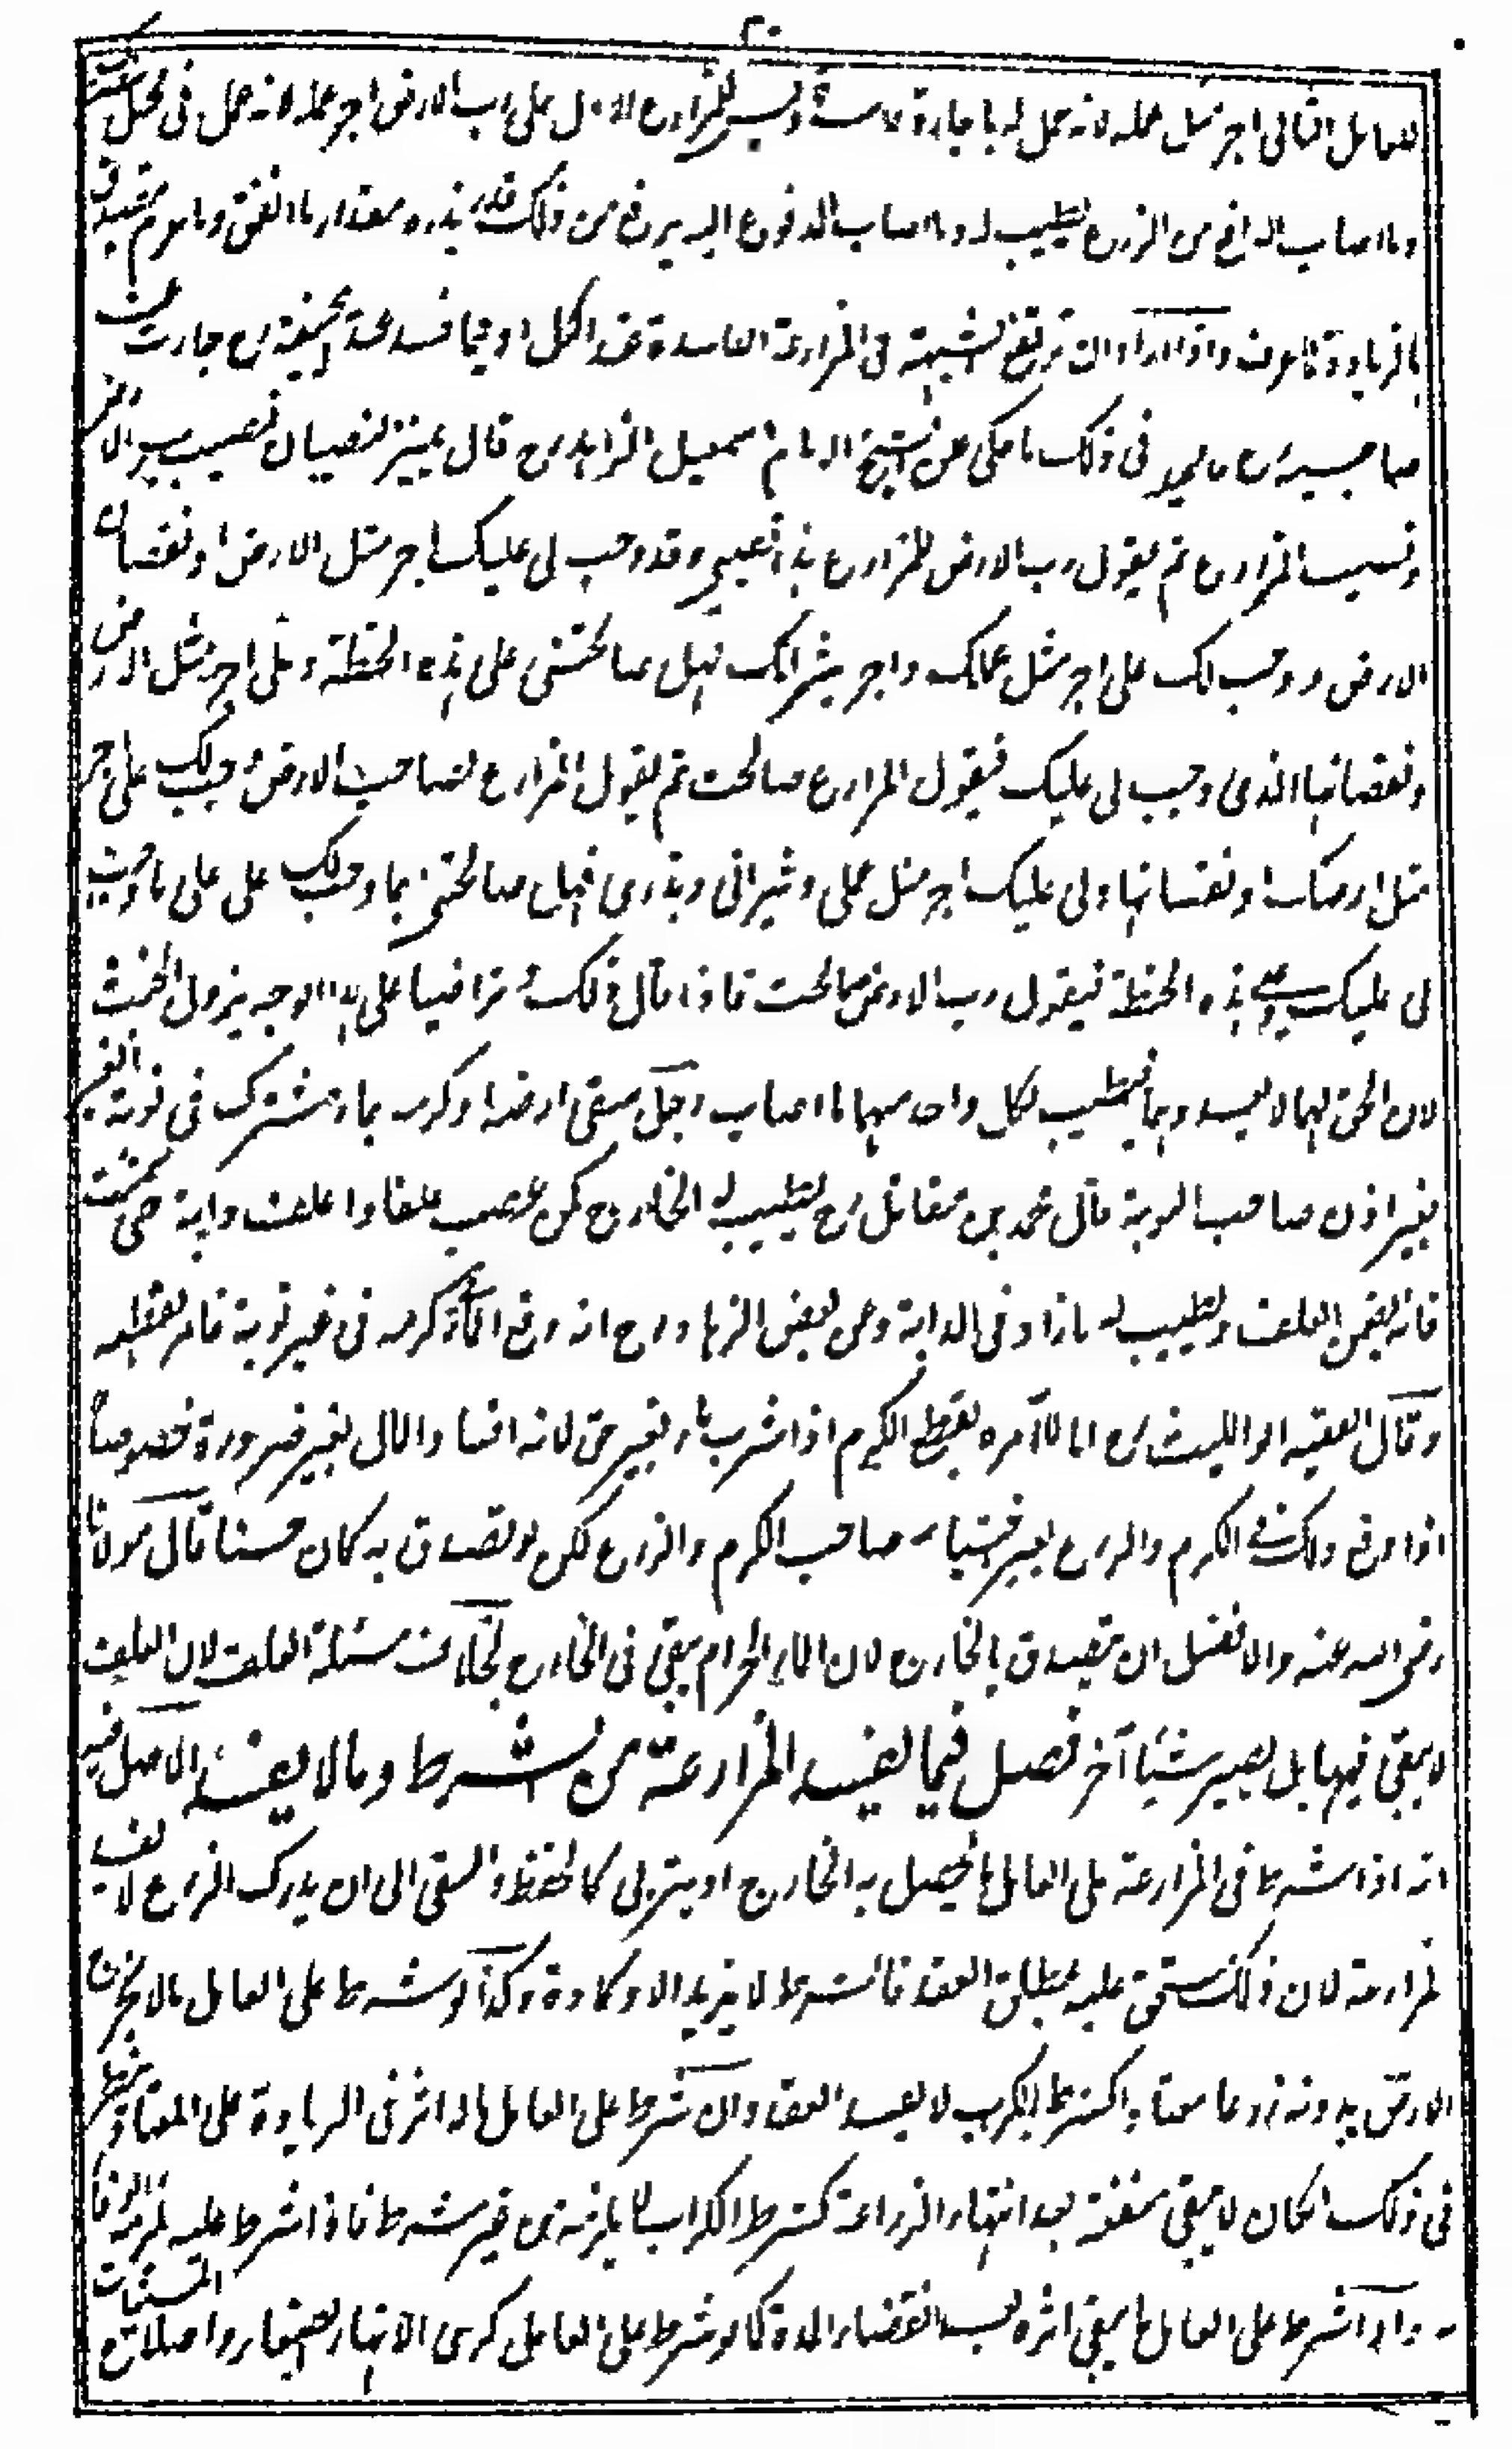 ٢٠
للعامل الثانى اجر مثل عمله لانه عمل له باجارة فاسدة وليس للمزارع الاول على رب الارض اجر عمله لانه عمل فى محل
وما اصاب الدافع من الزرع يطيب له وما اصاب المدفوع اليه يرفع من ذلك قدر بذره ومقدار ما انفق وما غرم ويتصدق
بالزيادة لما عرف واذا ارادا ان ترتفع الشبهة فى المزارعة الفاسدة عند الكل او فيما فسد عند ابى حنيفة رح وجازت عند
صاحبيه رح فالحيلة فى ذلك ما حكى عن الشيخ الامام اسمعيل الزاهد رح قال يميز النصيبان نصيب رب الارض
ونصيب المزارع ثم يقول رب الارض للمزارع هذا نصيبى وقد وجب لى عليك اجر مثل الارض او نقصان
الارض ووجب لك على اجر مثل عملك واجر ثيرانك فهل صالحتنى على هذه الحنطة وعلى اجر مثل الارض
ونقصانها الذى وجب لى عليك فيقول المزارع صالحت ثم يقول المزارع لصاحب الارض وجب لك على اجر
مثل ارضك او نقصانها ولى عليك اجر مثل عملى وثيرانى وبذرى فهل صالحتنى بما وجب لك على على ما وجب
لى عليك وعلى هذه الحنطة فيقول رب الارض صالحت فاذا قال ذلك وتراضيا على هذا الوجه يزول الخبث
لان الحق لهما لا يعدوهما فيطيب لكل واحد منهما ما اصاب رجل سقى ارضه او كرمه بماء مشترك فى نوبة الغير
بغير اذن صاحب النوبة قال محمد بن مقاتل رح يطيب له الخارج كمن غصب علفا واعلف دابة حتى سمنت
فانه يضمن العلف ويطيب له ما زاد فى الدابة وعن بعض الزهاد رح انه وقع الماء فى كرمه فى غير نوبة فامر بقطعه
وقال الفقيه ابو الليث رح انا لا آمره بقطع الكرم اذا شرب ماء بغير حق لانه افساد المال بغير ضرورة خصوصا
اذا وقع ذلك فى الكرم والزرع بغير اختيار صاحب الكرم والزرع لكن لو تصدق به كان حسنا قال مولانا
رضى الله عنه والافضل ان يتصدق بالخارج لان الماء الحرام يبقى فى الخارج بخلاف مسئلة العلف لان العلف
لا يبقى فيهما بل يصير شيئا آخر فصل فيما يفسد المزارعة من الشرط وما لا يفسد الاصل فيه
انه اذا شرط فى المزارعة على العامل ما يحصل به الخارج او يتربى كالحفظ والسقى الى ان يدرك الزرع لا يفسد
المزارعة لان ذلك مستحق عليه بمطلق العقد فالشرط لا يزيد الا وكادة وكذا لو شرط على العامل ما لا تخرج
الارض بدونه زرعا معتادا كشرط الكرب لا يفسد العقد وان شرط على العامل ما له اثر فى الزيادة على المعتاد
فى ذلك المكان لا يبقى منفعته بعد انتهاء الزراعة كشرط الكراب لا يلزمه من غير شرط فاذا شرط عليه لزمه الوفاء
به وان شرط على العامل ما يبقى اثره بعد انقضاء المدة كما لو شرط على العامل كرى الانهار الصغار واصلاح المسنيات